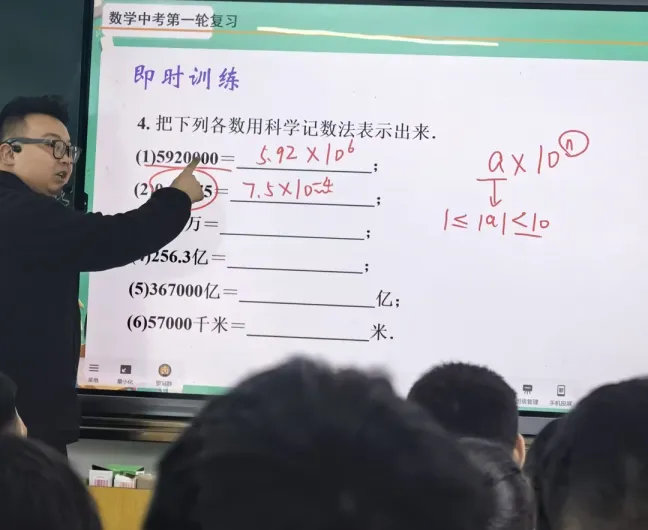 数学中考第一轮复习
即时训练
4. 把下列各数用科学记数法表示出来.
(1)5920000= 5.92×10⁶ ;
5= 7.5×10⁻⁴ ;
万= ;
256.3亿= ;
(5)367000亿= 亿;
(6)57000千米= 米.
a×10ⁿ
1≤|a|<10